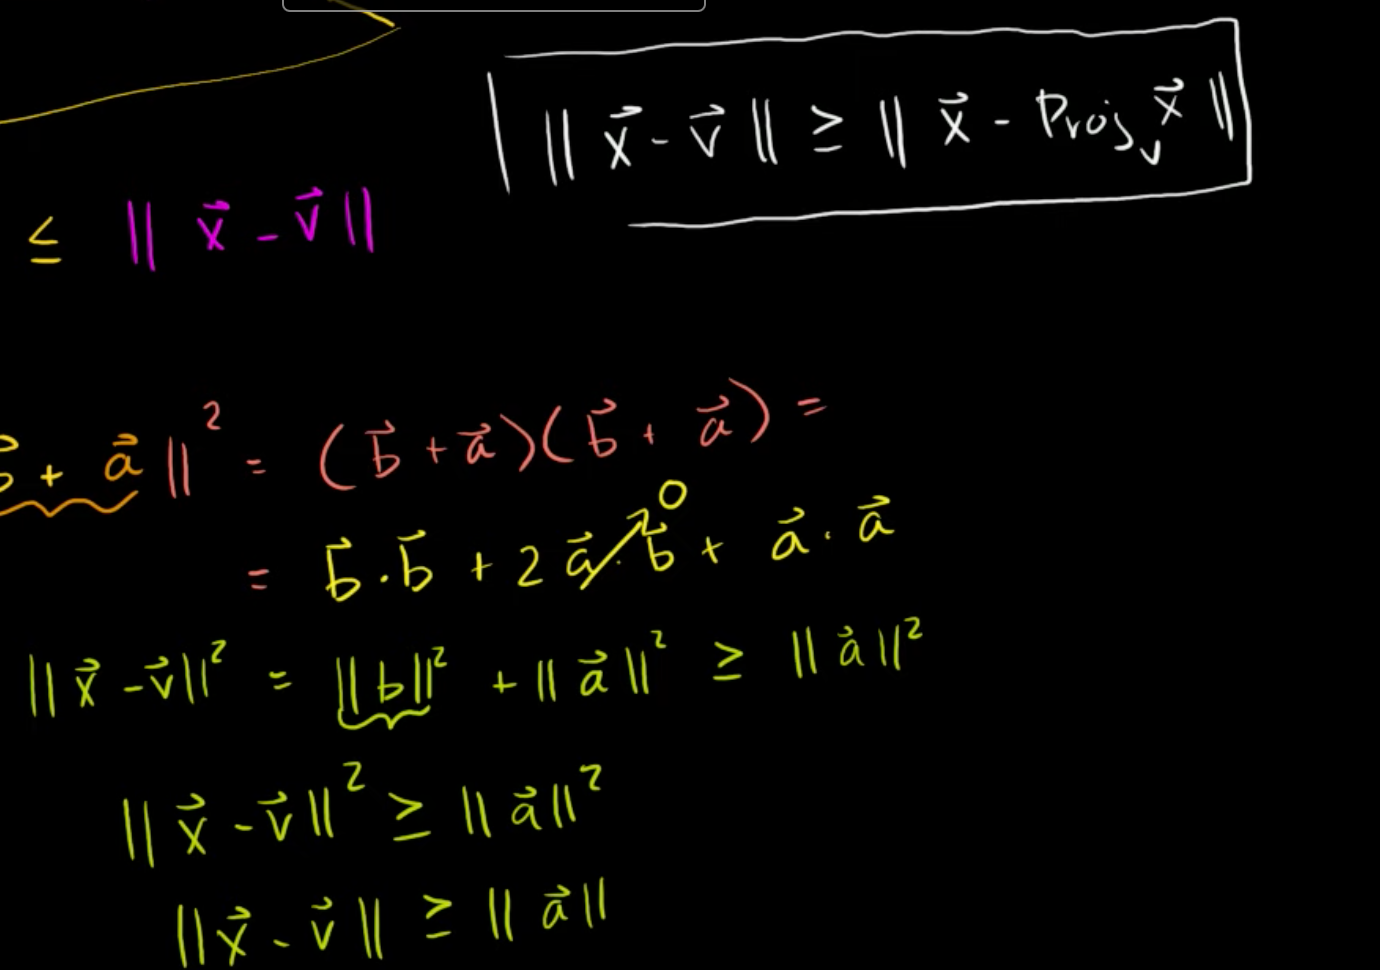 ‖ x⃗ - v⃗ ‖ ≥ ‖ x⃗ - Proj_v x⃗ ‖
≤ ‖ x⃗ - v⃗ ‖
b⃗ + a⃗ ‖² = (b⃗ + a⃗)(b⃗ + a⃗) =
= b⃗ · b⃗ + 2 a⃗ · b⃗ 0 + a⃗ · a⃗
‖ x⃗ - v⃗ ‖² = ‖ b ‖² + ‖ a⃗ ‖² ≥ ‖ a⃗ ‖²
‖ x⃗ - v⃗ ‖² ≥ ‖ a⃗ ‖²
‖ x⃗ - v⃗ ‖ ≥ ‖ a⃗ ‖